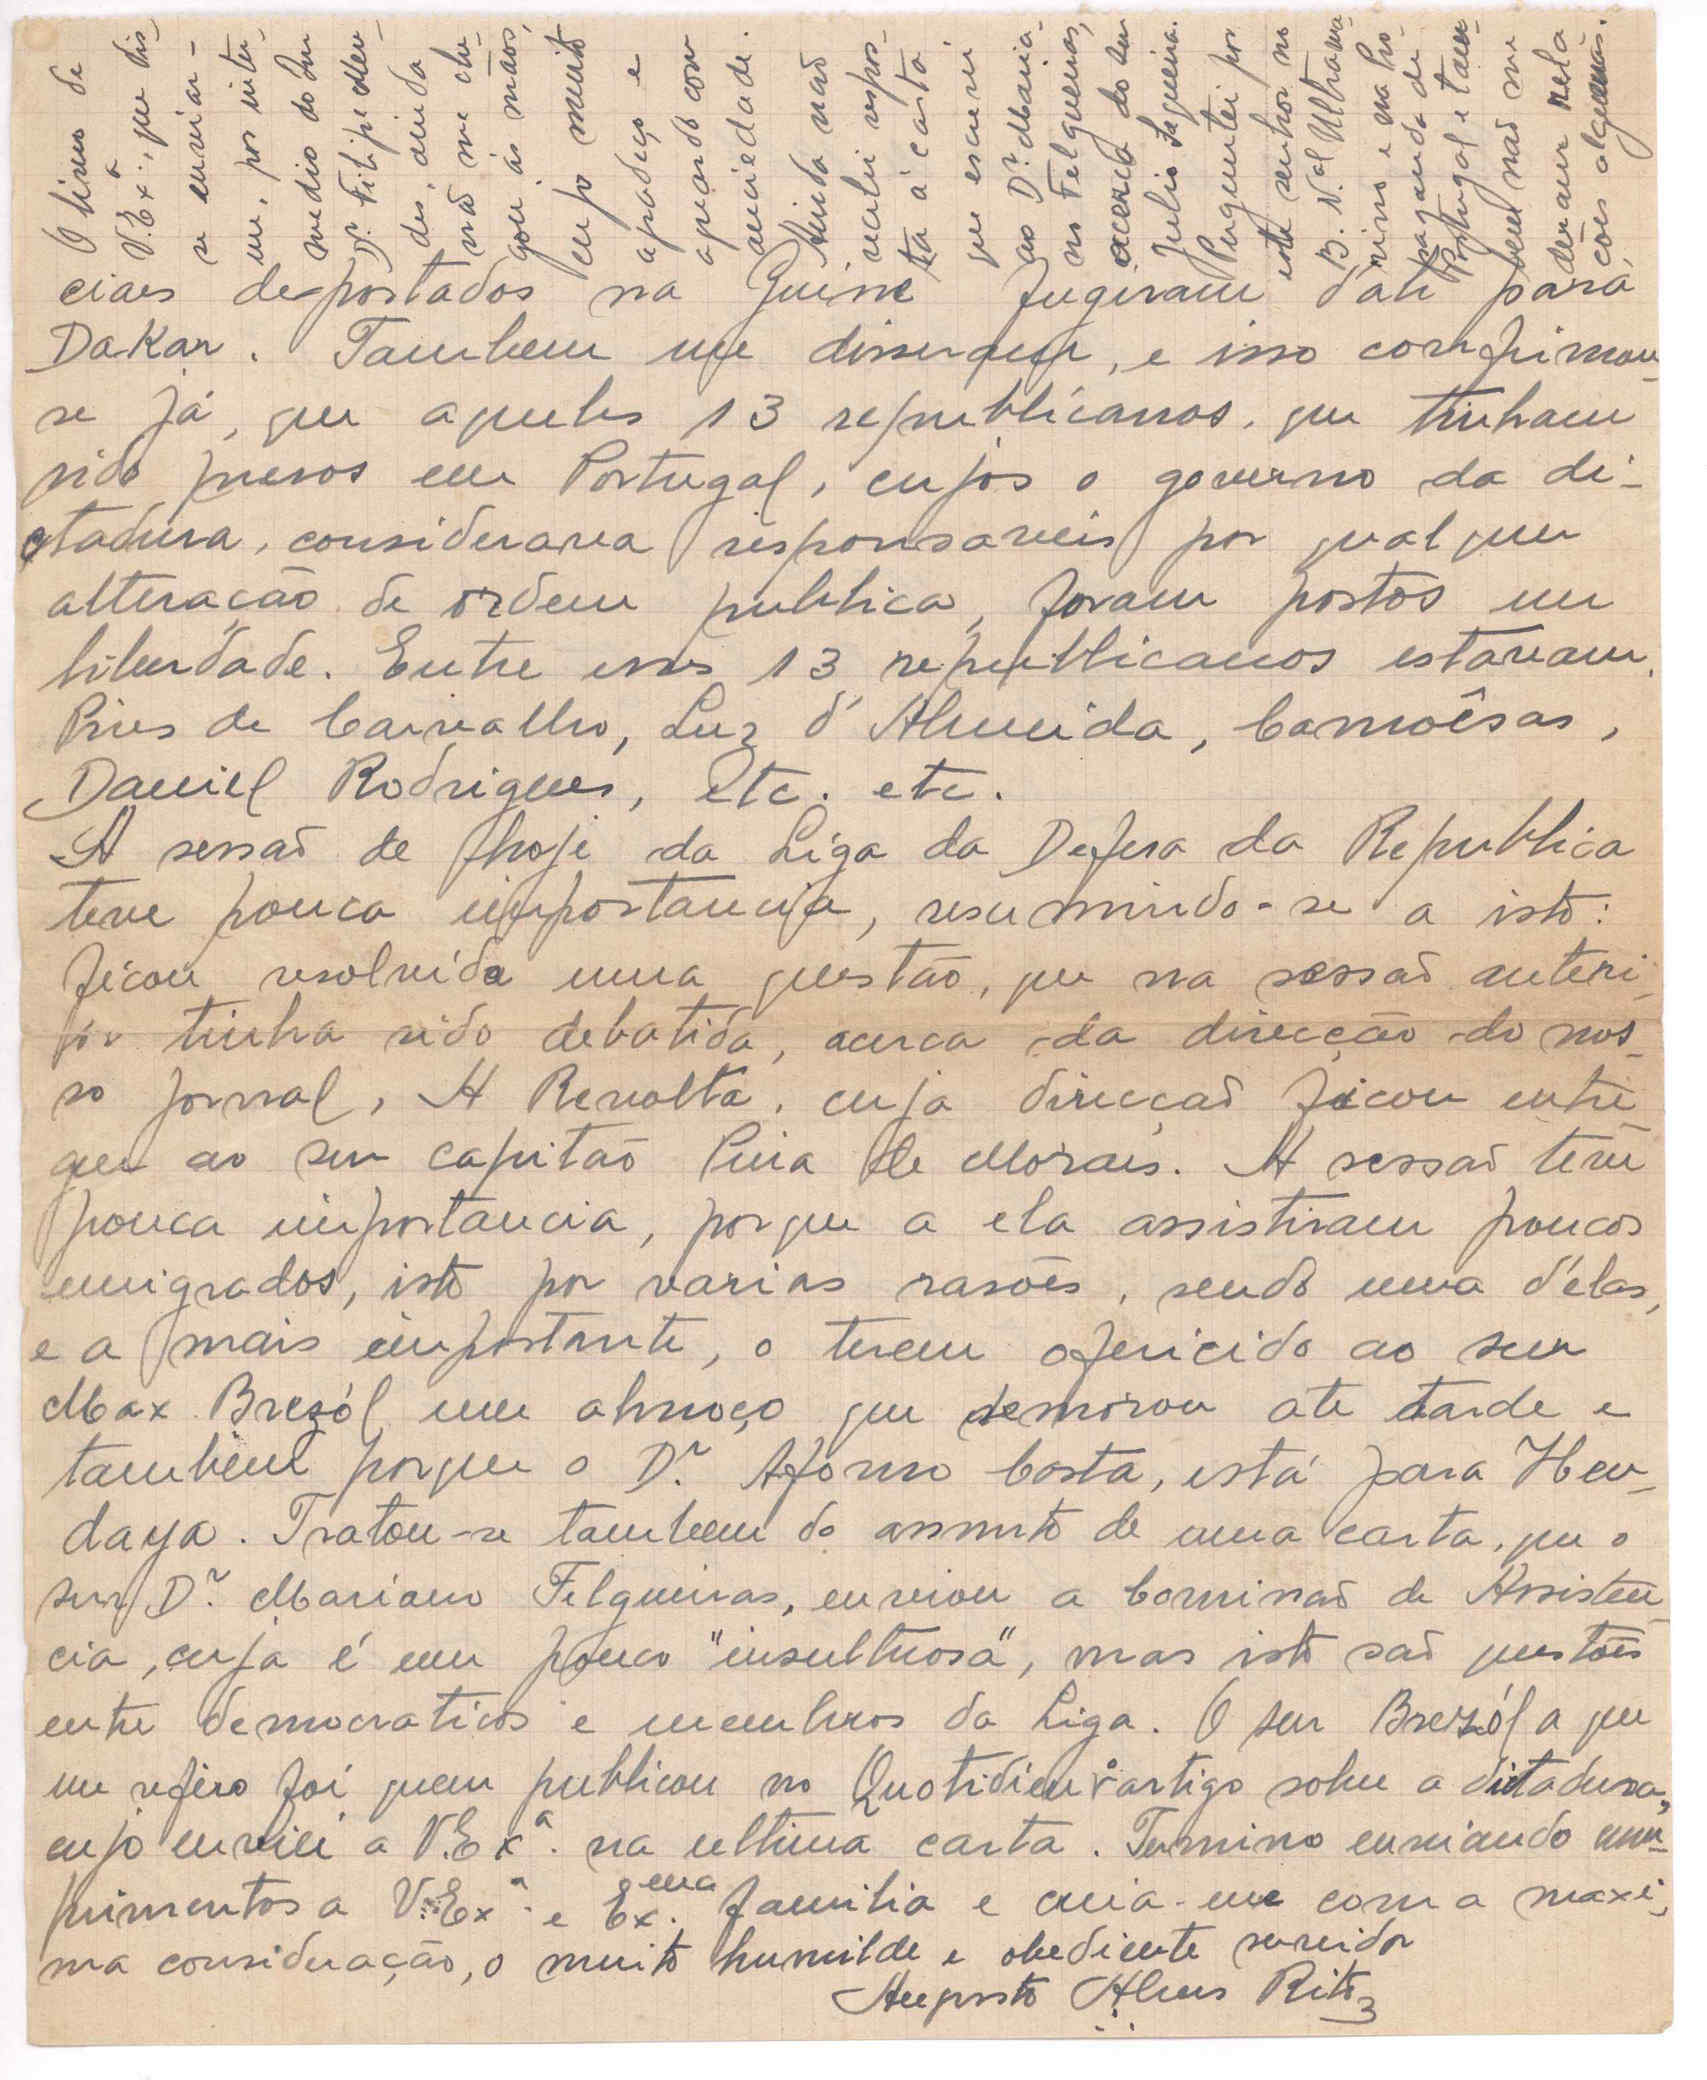 ciaes deportados na Guine fugiram dali para
Dakar. Tambem me disseram, e isso confirmou-
se já, que aqueles 13 republicanos, que tinham
sido presos em Portugal, cujos o governo da di-
ctadura, considerava responsaveis por qualquer
alteração de ordem publica, foram postos em
liberdade. Entre esses 13 republicanos estavam,
Pires de Carvalho, Luz d'Almeida, Camoêsas,
Daniel Rodrigues, etc. etc.
A sessaõ de hoje da Liga da Defesa da Republica
teve pouca importancia, resumindo-se a isto:
ficou resolvida uma questão, que na sessaõ anteri-
or tinha sido debatida, acerca da direcção do nos-
so jornal, A Revolta, cuja direcçaõ ficou entre
gue ao snr capitaõ Pina de Morais. A sessaõ teve
pouca importancia, porque a ela assistiram poucos
emigrados, isto por varias rasões, sendo uma d'elas,
e a mais importante, o terem ofericido ao snr
Max Brezól um almoço que demorou ate tarde e
tambem porque o Dr. Afonso Costa, está para Hen-
daya. Tratou-se tambem do assunto de uma carta, que o
snr Dr. Mariano Felgueiras, enviou a Comissaõ de Assisten
cia, cuja é um pouco "insultuosa", mas isto saõ questões
entre democraticos e membros da Liga. O snr Brezól a que
me refiro foi quem publicou no Quotidien o artigo sobre a dictadura,
cujo enviei a V. Exª. na ultima carta. Termino enviando cum-
primentos a V. Exª. e Ex.ma familia e creia-me com a maxi-
ma consideração, o muito humilde e obediente servidor
Augusto Alves Rito
O livro de
V. Exª., que dis
se enviar-
me, por inter-
medio do snr
Dr. Filipe Men-
des, ainda
naõ me che-
gou ás mãos,
cujo muito
agradeço e
aguardo com
anciedade.
Ainda naõ
recebi respos-
ta á carta
que escrevi
ao Dr. Maria-
no Felgueiras,
acerca do snr
Julio Sequeira.
Perguntei por
este senhor no
B. N.al Ultrama-
rino e na Pro-
paganda de
Portugal e tam-
bem naõ me
deram nela
cões algumas.